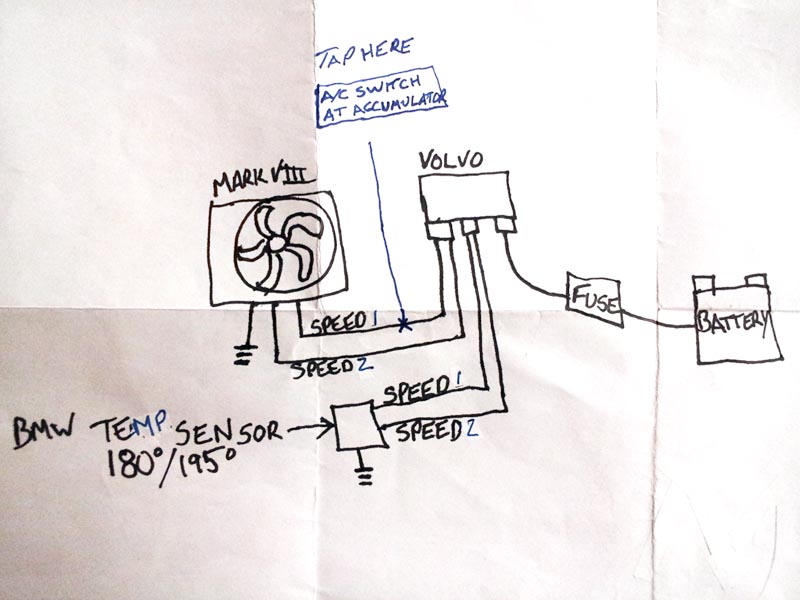 TAP HERE
A/C SWITCH
AT ACCUMULATOR
MARK VIII
VOLVO
FUSE
BATTERY
SPEED 1
SPEED 2
SPEED 1
SPEED 2
BMW TEMP. SENSOR
180°/195°